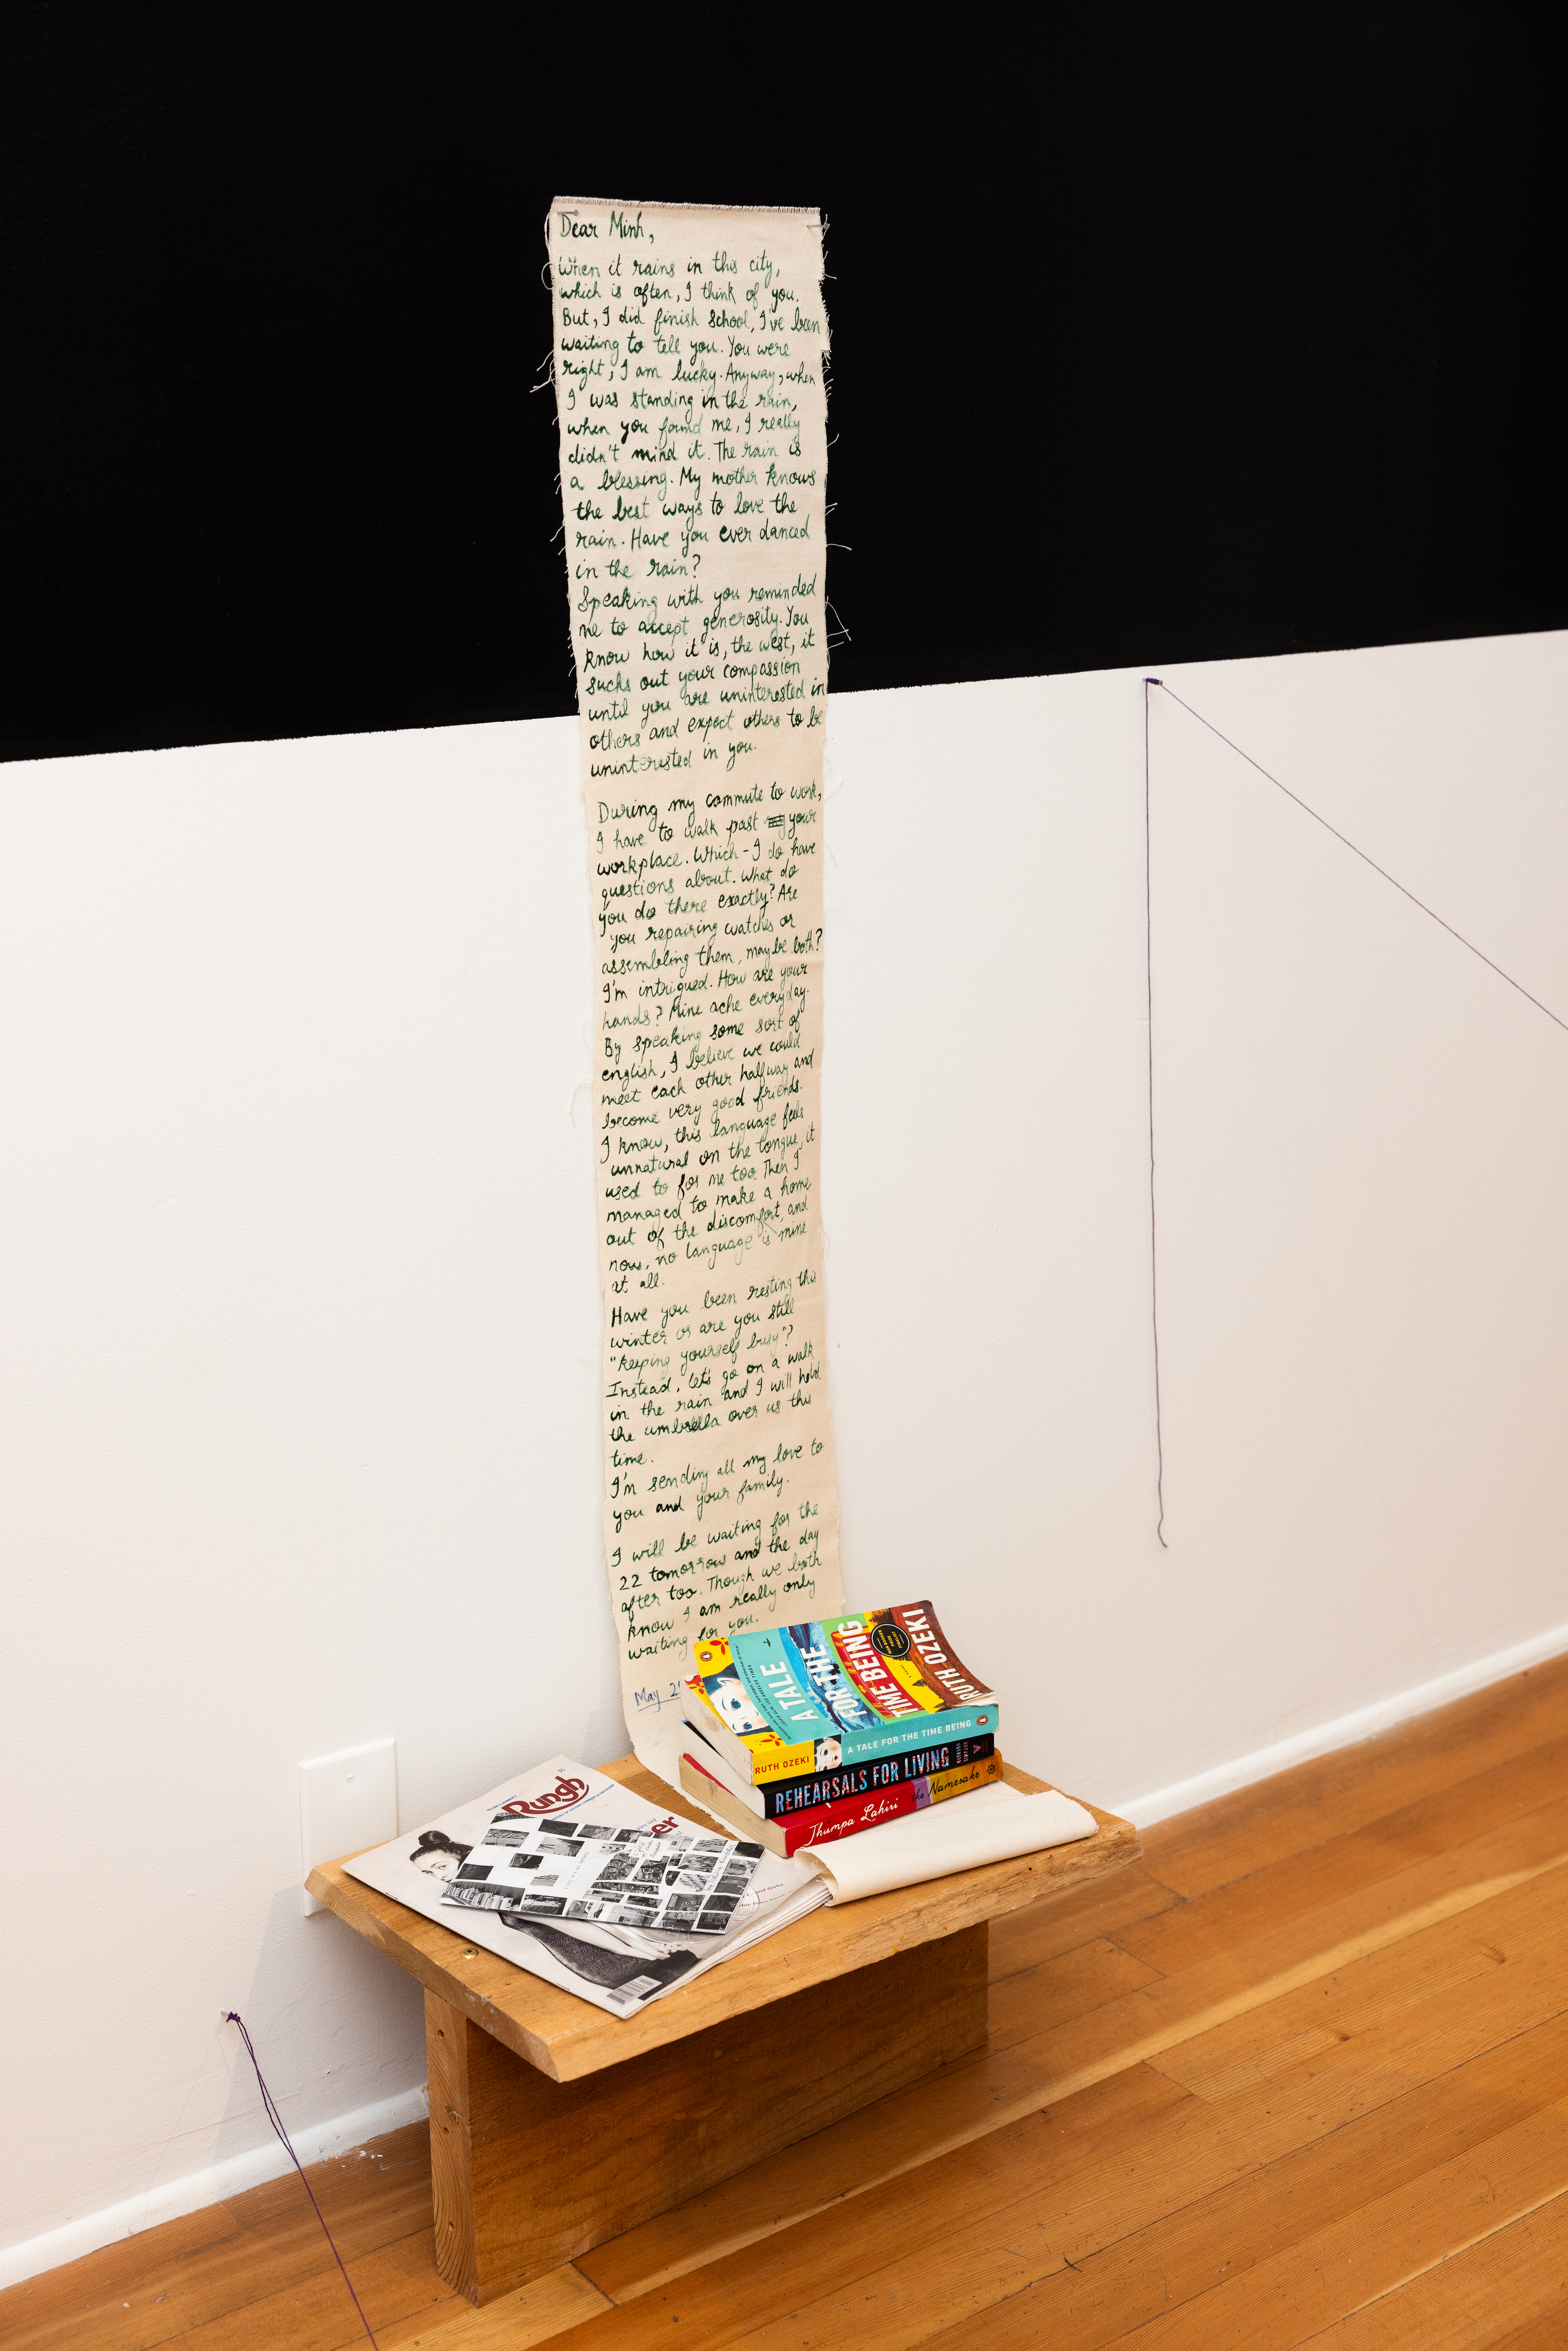 Dear Minh,
When it rains in this city,
which is often, I think of you.
But, I did finish school, I've been
waiting to tell you. You were
right, I am lucky. Anyway, when
I was standing in the rain,
when you found me, I really
didn't mind it. The rain is
a blessing. My mother knows
the best ways to love the
rain. Have you ever danced
in the rain?
Speaking with you reminded
me to accept generosity. You
know how it is, the west, it
sucks out your compassion
until you are uninterested in
others and expect others to be
uninterested in you.
During my commute to work,
I have to walk past your
workplace. Which - I do have
questions about. What do
you do there exactly? Are
you repairing watches or
assembling them, maybe both?
I'm intrigued. How are your
hands? Mine ache everyday.
By speaking some sort of
english, I believe we could
meet each other halfway and
become very good friends.
I know, this language feels
unnatural on the tongue, it
used to for me too. Then I
managed to make a home
out of the discomfort, and
now, no language is mine
at all.
Have you been resting this
winter or are you still
"keeping yourself busy"?
Instead, let's go on a walk
in the rain and I will hold
the umbrella over us this
time.
I'm sending all my love to
you and your family.
I will be waiting for the
22 tomorrow and the day
after too. Though we both
know I am really only
waiting for you.
May 2
A TALE
FOR THE
TIME BEING
RUTH OZEKI
RUTH OZEKI A TALE FOR THE TIME BEING
REHEARSALS FOR LIVING
Jhumpa Lahiri the Namesake
Rungh
er